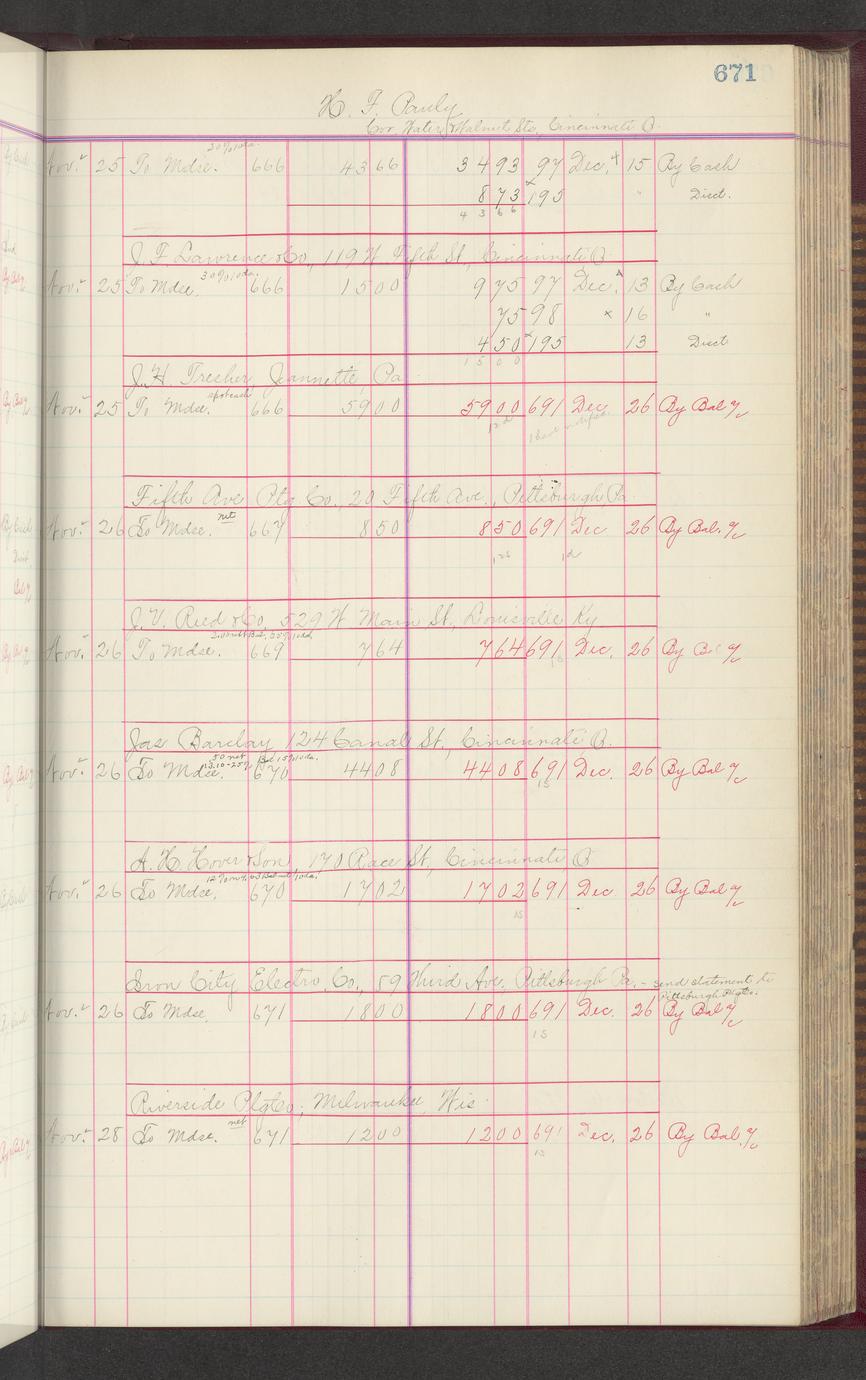 671
H. F. Pauly
Cor. Water & Walnut Sts., Cincinnati O.
20% 10 da.
Nov. 25 To Mdse. 666 43 66 34 93 97 Dec. 15 By Cash
8 73 195 " Disct.
43 66
J. F. Lawrence & Co., 119 W. Fifth St., Cincinnati O.
30% 10 da.
Nov. 25 To Mdse. 666 15 00 9 75 97 Dec. 13 By Cash
75 98 × 16 "
4 50 195 13 Disct
15 00
J. H. Trecher, Jeannette, Pa.
Nov. 25 To Mdse. 666 59 00 59 00 691 Dec 26 By Bal %
Fifth Ave Plg Co., 20 Fifth Ave., Pittsburgh Pa.
net
Nov. 26 To Mdse. 667 8 50 8 50 691 Dec 26 By Bal. %
J. V. Reed & Co, 529 W Main St., Louisville Ky.
Nov. 26 To Mdse. 669 7 64 7 64 691 Dec. 26 By Bal %
15
Jas Barclay, 124 Canal St., Cincinnati, O.
50 net Bal 15% 10 da.
Nov. 26 To Mdse. 670 44 08 44 08 691 Dec. 26 By Bal %
15
A. H. Hover & Son, 170 Race St, Cincinnati, O
Nov. 26 To Mdse. 670 17 02 17 02 691 Dec 26 By Bal %
15
Iron City Electro. Co., 59 Third Ave, Pittsburgh Pa. - send statement to
Pittsburgh Plg Co.
Nov. 26 To Mdse. 671 18 00 18 00 691 Dec. 26 By Bal %
15
Riverside Plg Co; Milwaukee, Wis.
net
Nov. 28 To Mdse. 671 12 00 12 00 691 Dec, 26 By Bal. %
15